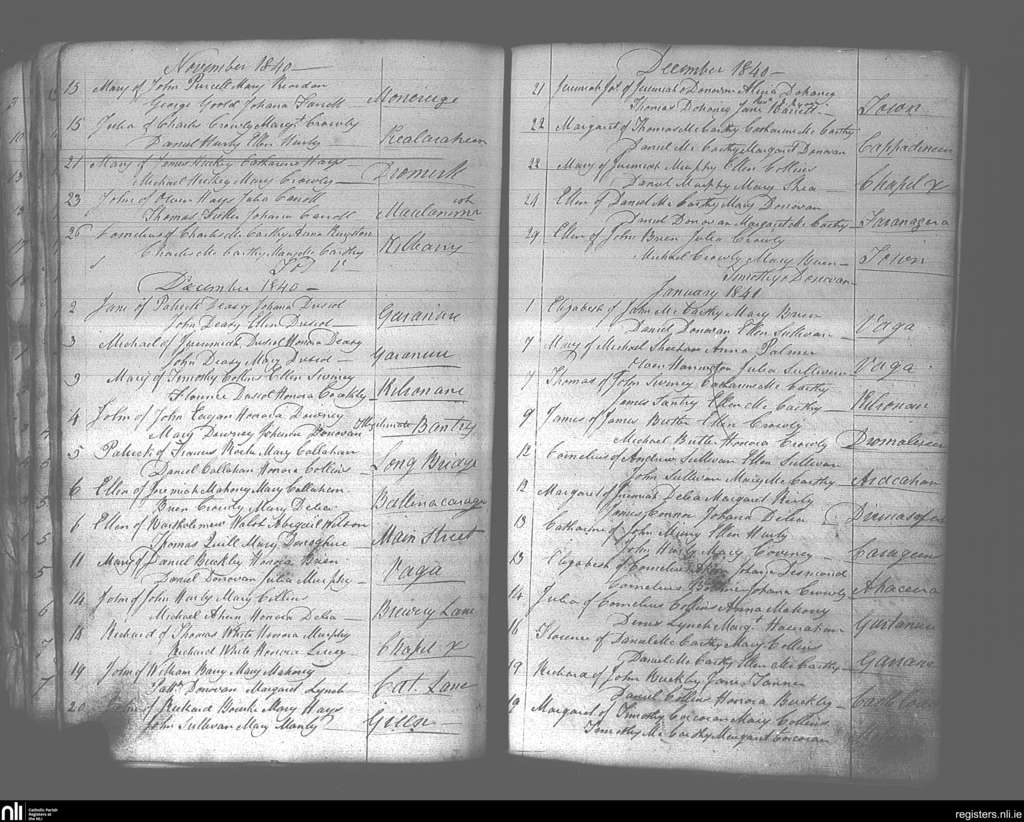 November 1840
15 Mary of John Purcell Mary Riordan
George Goold Johana Farrell
15 Julia of Charles Crowly Margt Crowly
Daniel Hurly Ellen Hurly
21 Mary of James Hickey Catharine Hays
Michael Hickey Mary Crowly Dromick
23 John of Owen Hays Julia Carroll
Thomas Johana Carroll
26 Cornelius of Charles Mc Carthy Anna
Charles Mc Carthy Margt Mc Carthy Kilbany
December 1840
2 Jane of Patrick Deasy Johana Driscol
John Deasy Ellen Driscol Garanure
3 Michael of Jeremiah Driscol Honora Deasy
John Deasy Mary Driscol Garanure
3 Mary of Timothy Collins Ellen Swiney
Florence Driscol Honora Coakley Kilronane
4 John of John Eagan Honora Downey
Mary Downey Johanna Donovan Bantry
5 Patrick of Francis Mary Callahan
Daniel Callahan Honora Collins Long Bridge
6 Ellen of Jeremiah Mahony Mary Callahan
Brien Crowly Mary Delia Ballinacarriga
6 Ellen of Bartholomew Walsh Abigail Wilson
Thomas Quill Mary Donoghue Main Street
11 Mary of Daniel Buckley Honora Brien
Daniel Donovan Julia Murphy Vaga
14 John of John Hurly Mary Collins
Michael Ahern Honora Delia Brewery Lane
18 Richard of Thomas White Honora Murphy
Richard White Honora Chapel X
19 John of William Barry Mary Mahony
Patk Donovan Margaret Lynch Cat. Lane
20 of Richard Bourke Mary Hays
John Sullivan Mary Manly Green
December 1840
21 Jeremiah of Jeremiah O Donovan Alicia Dohaney
Thomas Dohaney Jane Town
22 Margaret of Thomas Mc Carthy Catharine Mc Carthy
Daniel Mc Carthy Margaret Donovan
22 Mary of Jeremiah Murphy Ellen Collins
Daniel Murphy Mary Shea Chapel X
24 Ellen of Daniel Mc Carthy Mary Donovan
Daniel Donovan Margaret Mc Carthy
29 Ellen of John Brien Julia Crowly
Michael Crowly Mary Brien Town
Timothy O Donovan
January 1841
1 Elizabeth of John Mc Carthy Mary Brien
Daniel Donovan Ellen Sullivan Vaga
7 Mary of Michael Sheehan Anna Palmer
Owen Harrington Julia Sullivan Vaga
7 Thomas of John Swiney Catharine Mc Carthy
James Santry Ellen Mc Carthy Kilronane
9 James of James Butler Ellen Crowly
Michael Butler Honora Crowly
12 Cornelius of Andrew Sullivan Ellen Sullivan
John Sullivan Mary Mc Carthy Ardcahan
12 Margaret of Thomas Delia Margaret Hurly
James Connor Johana Delia
13 Catharine of John Murry Ellen Hurly
John Hurly Mary Coveney
13 Elizabeth of Cornelius Johana Desmond
Cornelius Johana Crowly
14 Julia of Cornelius Collins Anna Mahony
Denis Lynch Margt
16 Florence of Daniel Mc Carthy Mary Collins
Daniel Mc Carthy Ellen Mc Carthy
19 Richard of John Buckley Jane Tanner
Daniel Collins Honora Buckley
19 Margaret of Timothy Corcoran Mary Collins
Timothy Mc Carthy Margaret Corcoran
nli
Catholic Parish
Registers at
the NLI
registers.nli.ie